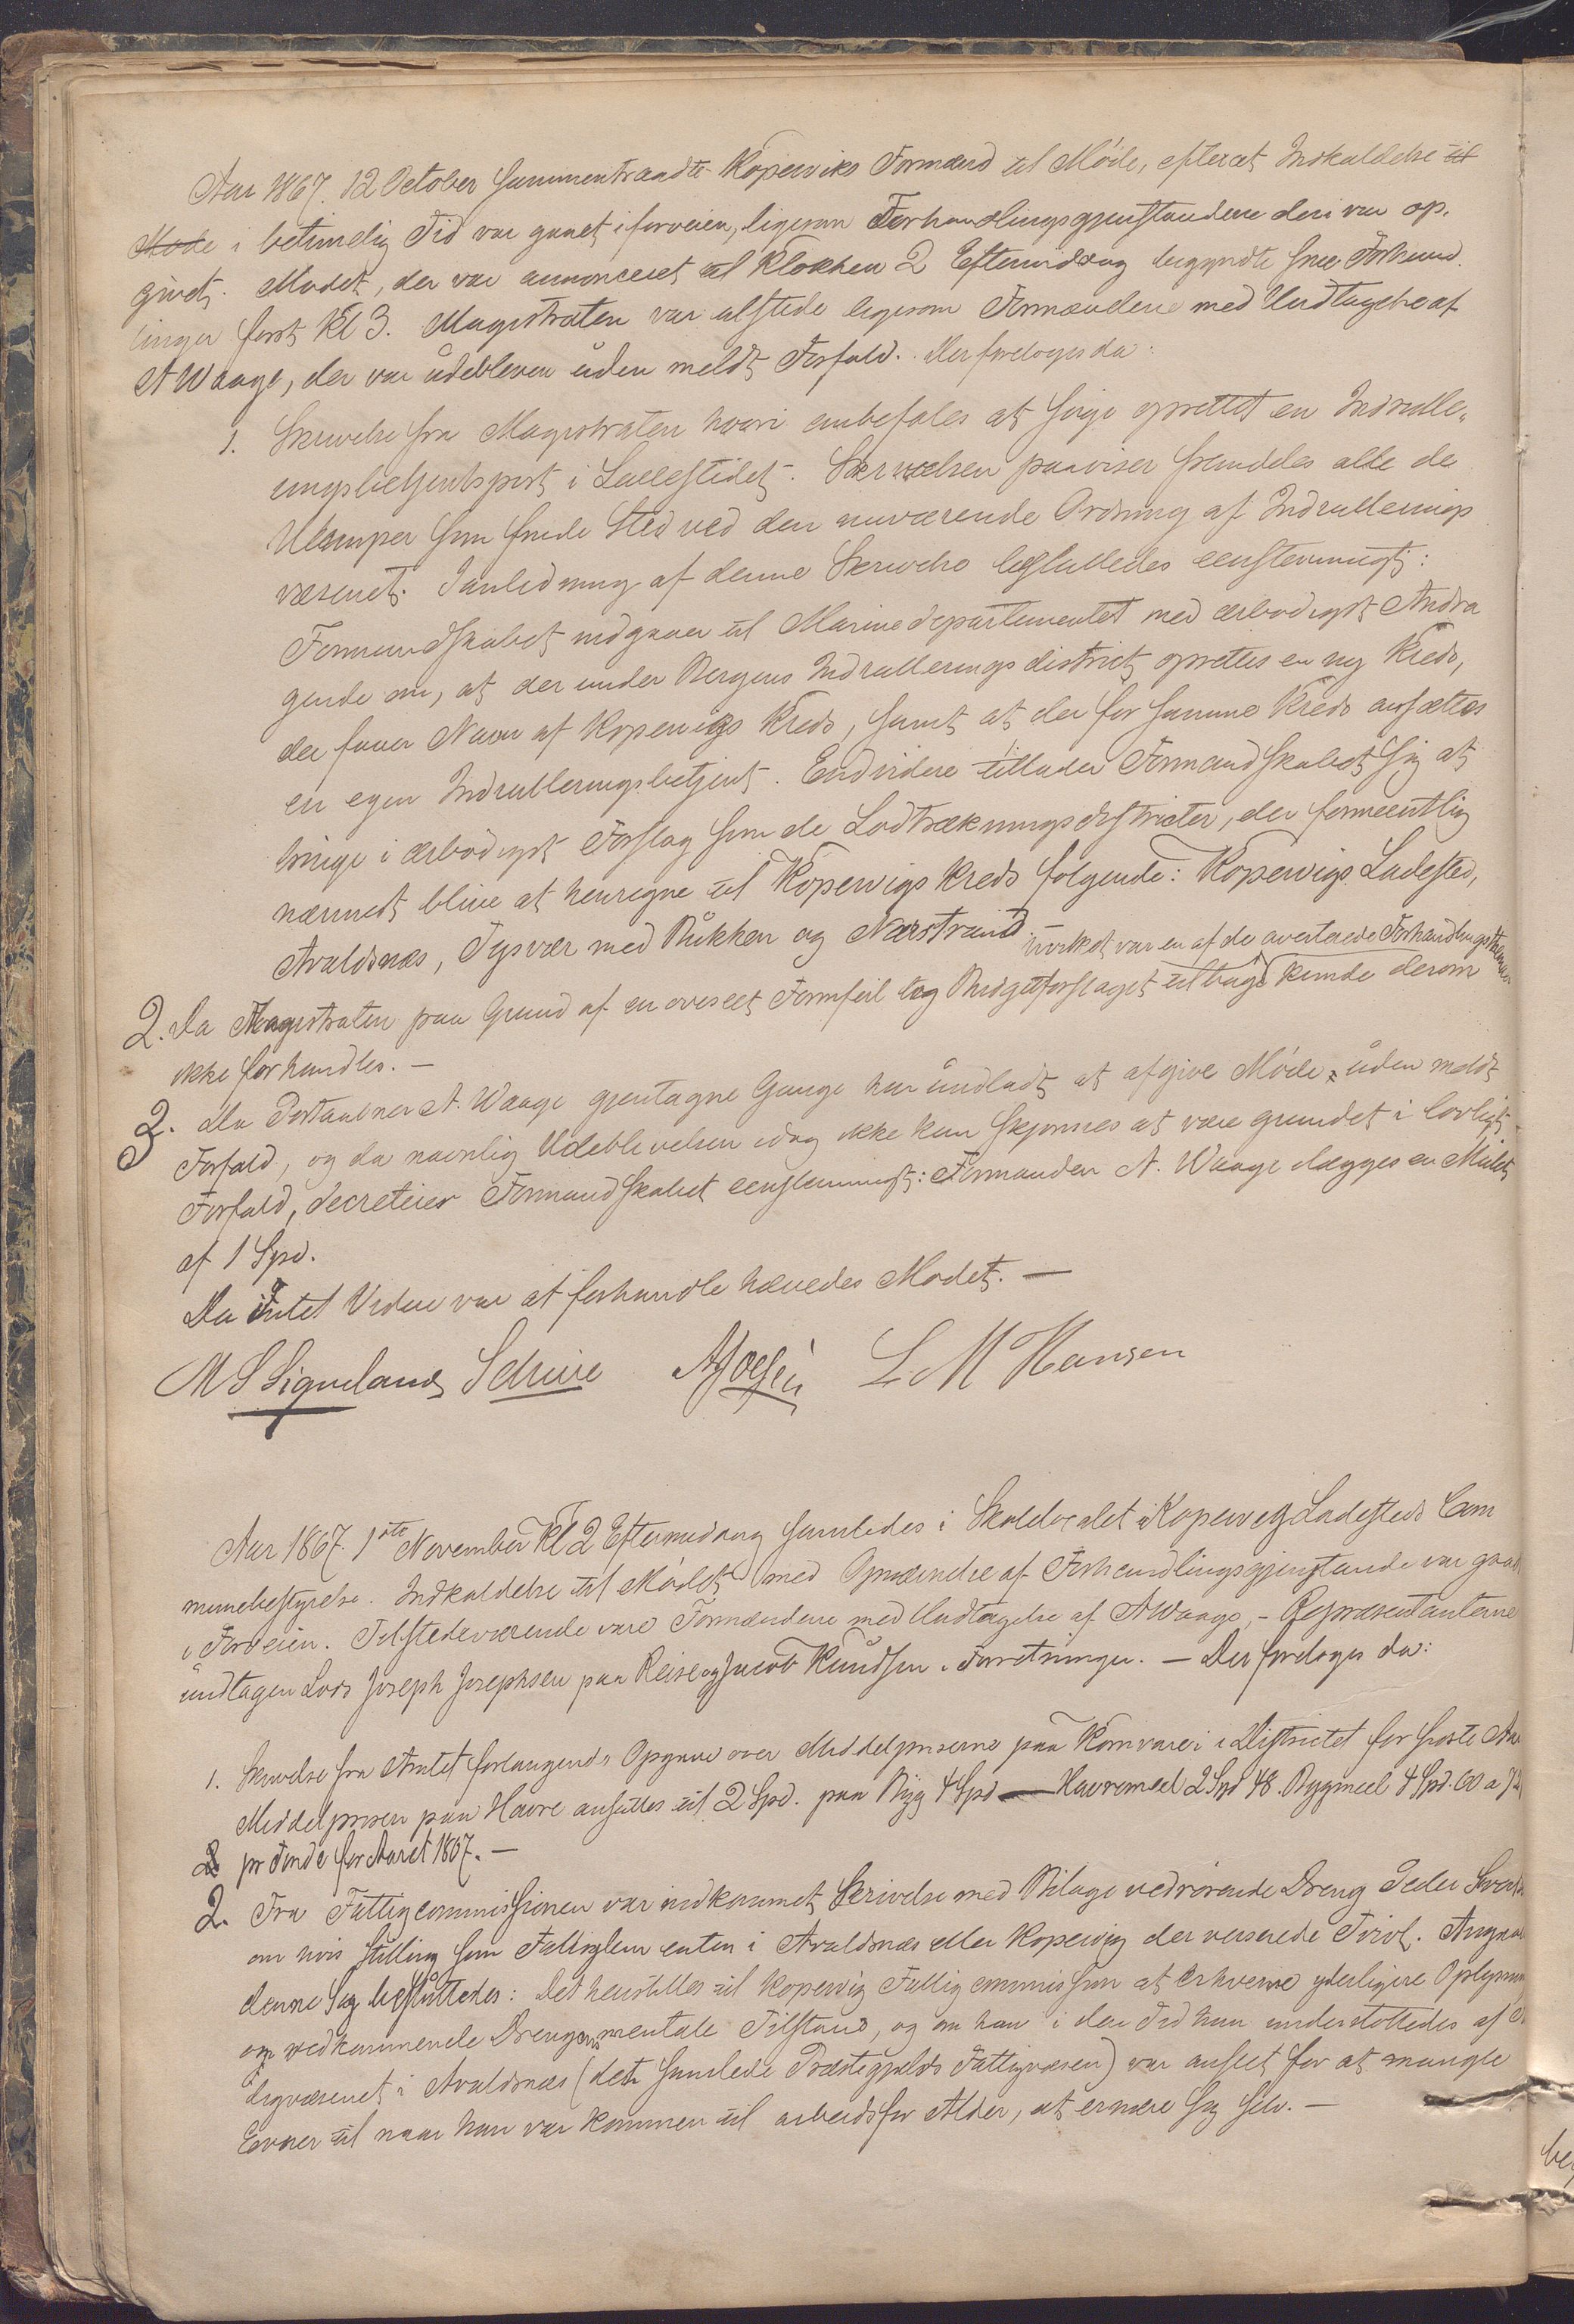 Aar 1867. 12 October sammentraadte Koperviks Formænd til Møde, efterat Indkaldelse til
Møde i betimelig Tid var gaaet i forveien, ligesom Forhandlingsgjenstandene deri var op-
givet. Mødet, der var annonceret til Klokken 2 Eftermidag begyndte sine Forhand-
linger først Kl 3. Magistraten var tilstede ligesom Formændene med Undtagelse af
A Waage, der var udebleven uden meldt Forfald. Der foretoges da:
1. Skrivelse fra Magistraten hvori anbefales at søge oprettet en Indrulle-
ringsbetjentspost i Ladestedet. Skrivelsen paaviser fremdeles alle de
Ulemper som finde Sted ved den nuværende Ordning af Indrullerings
væsenet. I anledning af denne Skrivelse besluttedes eenstemmigt:
Formandskabet indgaaer til Marinedepartementet med ærbødigst Andra
gende om, at der under Bergens Indrulleringsdistrict oprettes en ny Kreds,
der faaer Navn af Kopervigs Kreds, samt at der for samme Kreds ansættes
en egen Indrulleringsbetjent. Endvidere tillader Formandskabet sig at
bringe i ærbødigst Forslag som de Lodtrækningsdistricter, der formeentlig
nærmest blive at henregne til Kopervigs Kreds følgende: Kopervigs Ladested,
Avaldsnæs, Tysvær med Bukken og Nærstrand.
hvilket var en af de averterede Forhandlingsthemaer
2. Da Magistraten paa Grund af en overseet Formfeil tog Budgetforslaget tilbage kunde derom
ikke forhandles. —
3. Da Postaabner A. Waage gjentagne Gange har undladt at afgive Møde uden meldt
Forfald, og da navnlig Udeblivelsen idag ikke kan skjønnes at være grundet i lovligt
Forfald, decreterer Formandskabet eenstemmigt: Formanden A. Waage ilægges en Mulct
af 1 Spd.
Da Intet Videre var at forhandle hævedes Mødet. —
M S Liqueland Schiøtz L M Hansen
Aar 1867. 1ste November Kl 2 Eftermidag samledes i Skolelocalet i Kopervig Ladesteds Com
munebestyrelse. Indkaldelse til Mødet med Opnævnelse af Forhandlingsgjenstande var gaaet
i Forveien. Tilstedeværende vare Formændene med Undtagelse af A Waage, - Repræsentanterne
undtagen Lods Joseph Josephsen paa Reise og Jacob Knudsen i Forretninger. — Der foretoges da:
1. Skrivelse fra Amtet forlangende Opgave over Middelpriserne paa Kornvarer i Districtet for sidste Aar
Middelprisen paa Havre ansattes til 2 Spd. paa Byg 4 Spd — Havremeel 2 Spd 48. Bygmeel 4 Spd. 60 a 72
pr Tønde for Aaret 1867. —
2. Fra Fattigcommissionen var indkommet Skrivelse med Bilage vedrørende Dreng Peder
om hvis Stilling som Fattiglem enten i Avaldsnæs eller Kopervig der verserede Tvivl. Angaaende
denne Sag besluttedes: Det henstilles til Kopervig Fattigcommission at erhverve yderligere Oplysning
om vedkommende Drengens mentale Tilstand, og om han i den Tid han understøttedes af Fat
tigvæsenet i Avaldsnæs (det samlede Præstegjelds Fattigvæsen) var anseet for at mangle
Evner til naar han var kommen til arbeidsfør Alder, at ernære sig selv. —